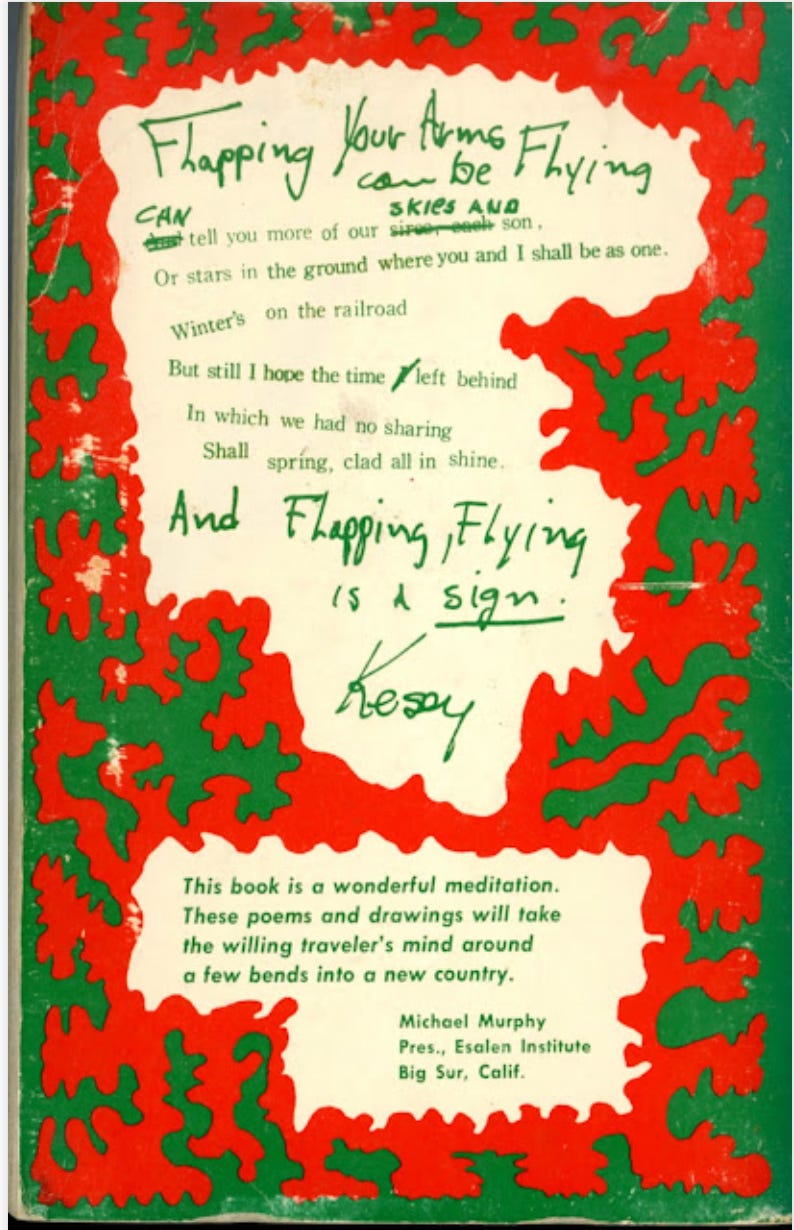 Flapping Your Arms
can be Flying
CAN SKIES AND
And tell you more of our sires, each son,
Or stars in the ground where you and I shall be as one.
Winter's on the railroad
But still I hope the time I left behind
In which we had no sharing
Shall spring, clad all in shine.
And Flapping, Flying
is a sign.
Kesey
This book is a wonderful meditation.
These poems and drawings will take
the willing traveler's mind around
a few bends into a new country.
Michael Murphy
Pres., Esalen Institute
Big Sur, Calif.